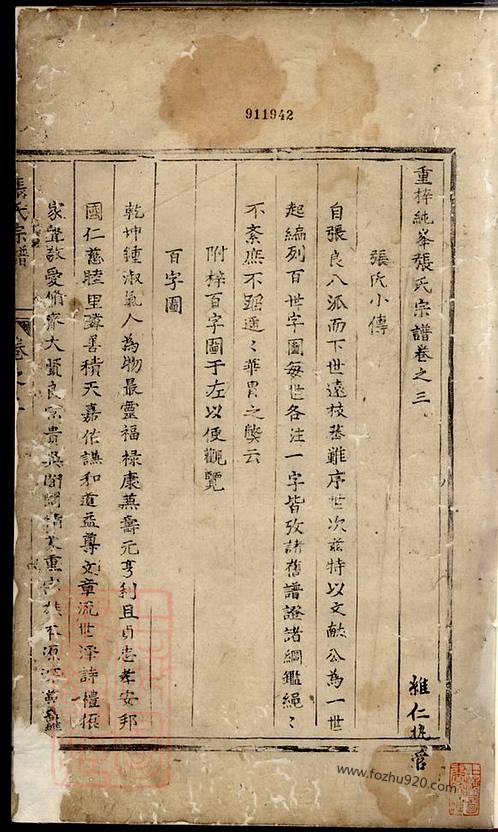 911942
重梓純峯張氏宗譜卷之三
張氏小傳
自張良八派而下世遠枝蕃難序世次茲特以文獻公為一世
起編列百世字圖每世各注一字皆攷諸舊譜證諸綱鑑繩ミ
不紊庶不蹈遥ミ華胄之誚云
附梓百字圖于左以便觀覽
百字圖
乾坤鍾淑氣人為物最靈福禄康蕪壽元亨利且貞忠孝安邦
國仁慈睦里鄰善積天嘉佑謙和道益尊文章流世澤詩禮振
家聲敬愛脩齊大賢良富貴 重
張氏宗譜
卷之
雅仁執管
www.fozhu920.com